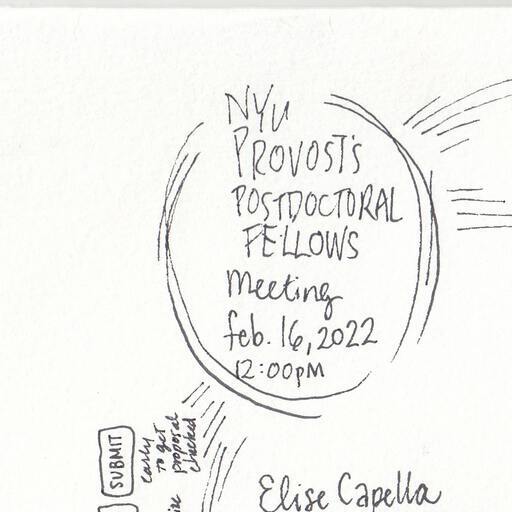 NYU
PROVOST'S
POSTDOCTORAL
FELLOWS
Meeting
feb. 16, 2022
12:00pm
SUBMIT
early
to get
proposal
checked
Elise Capella